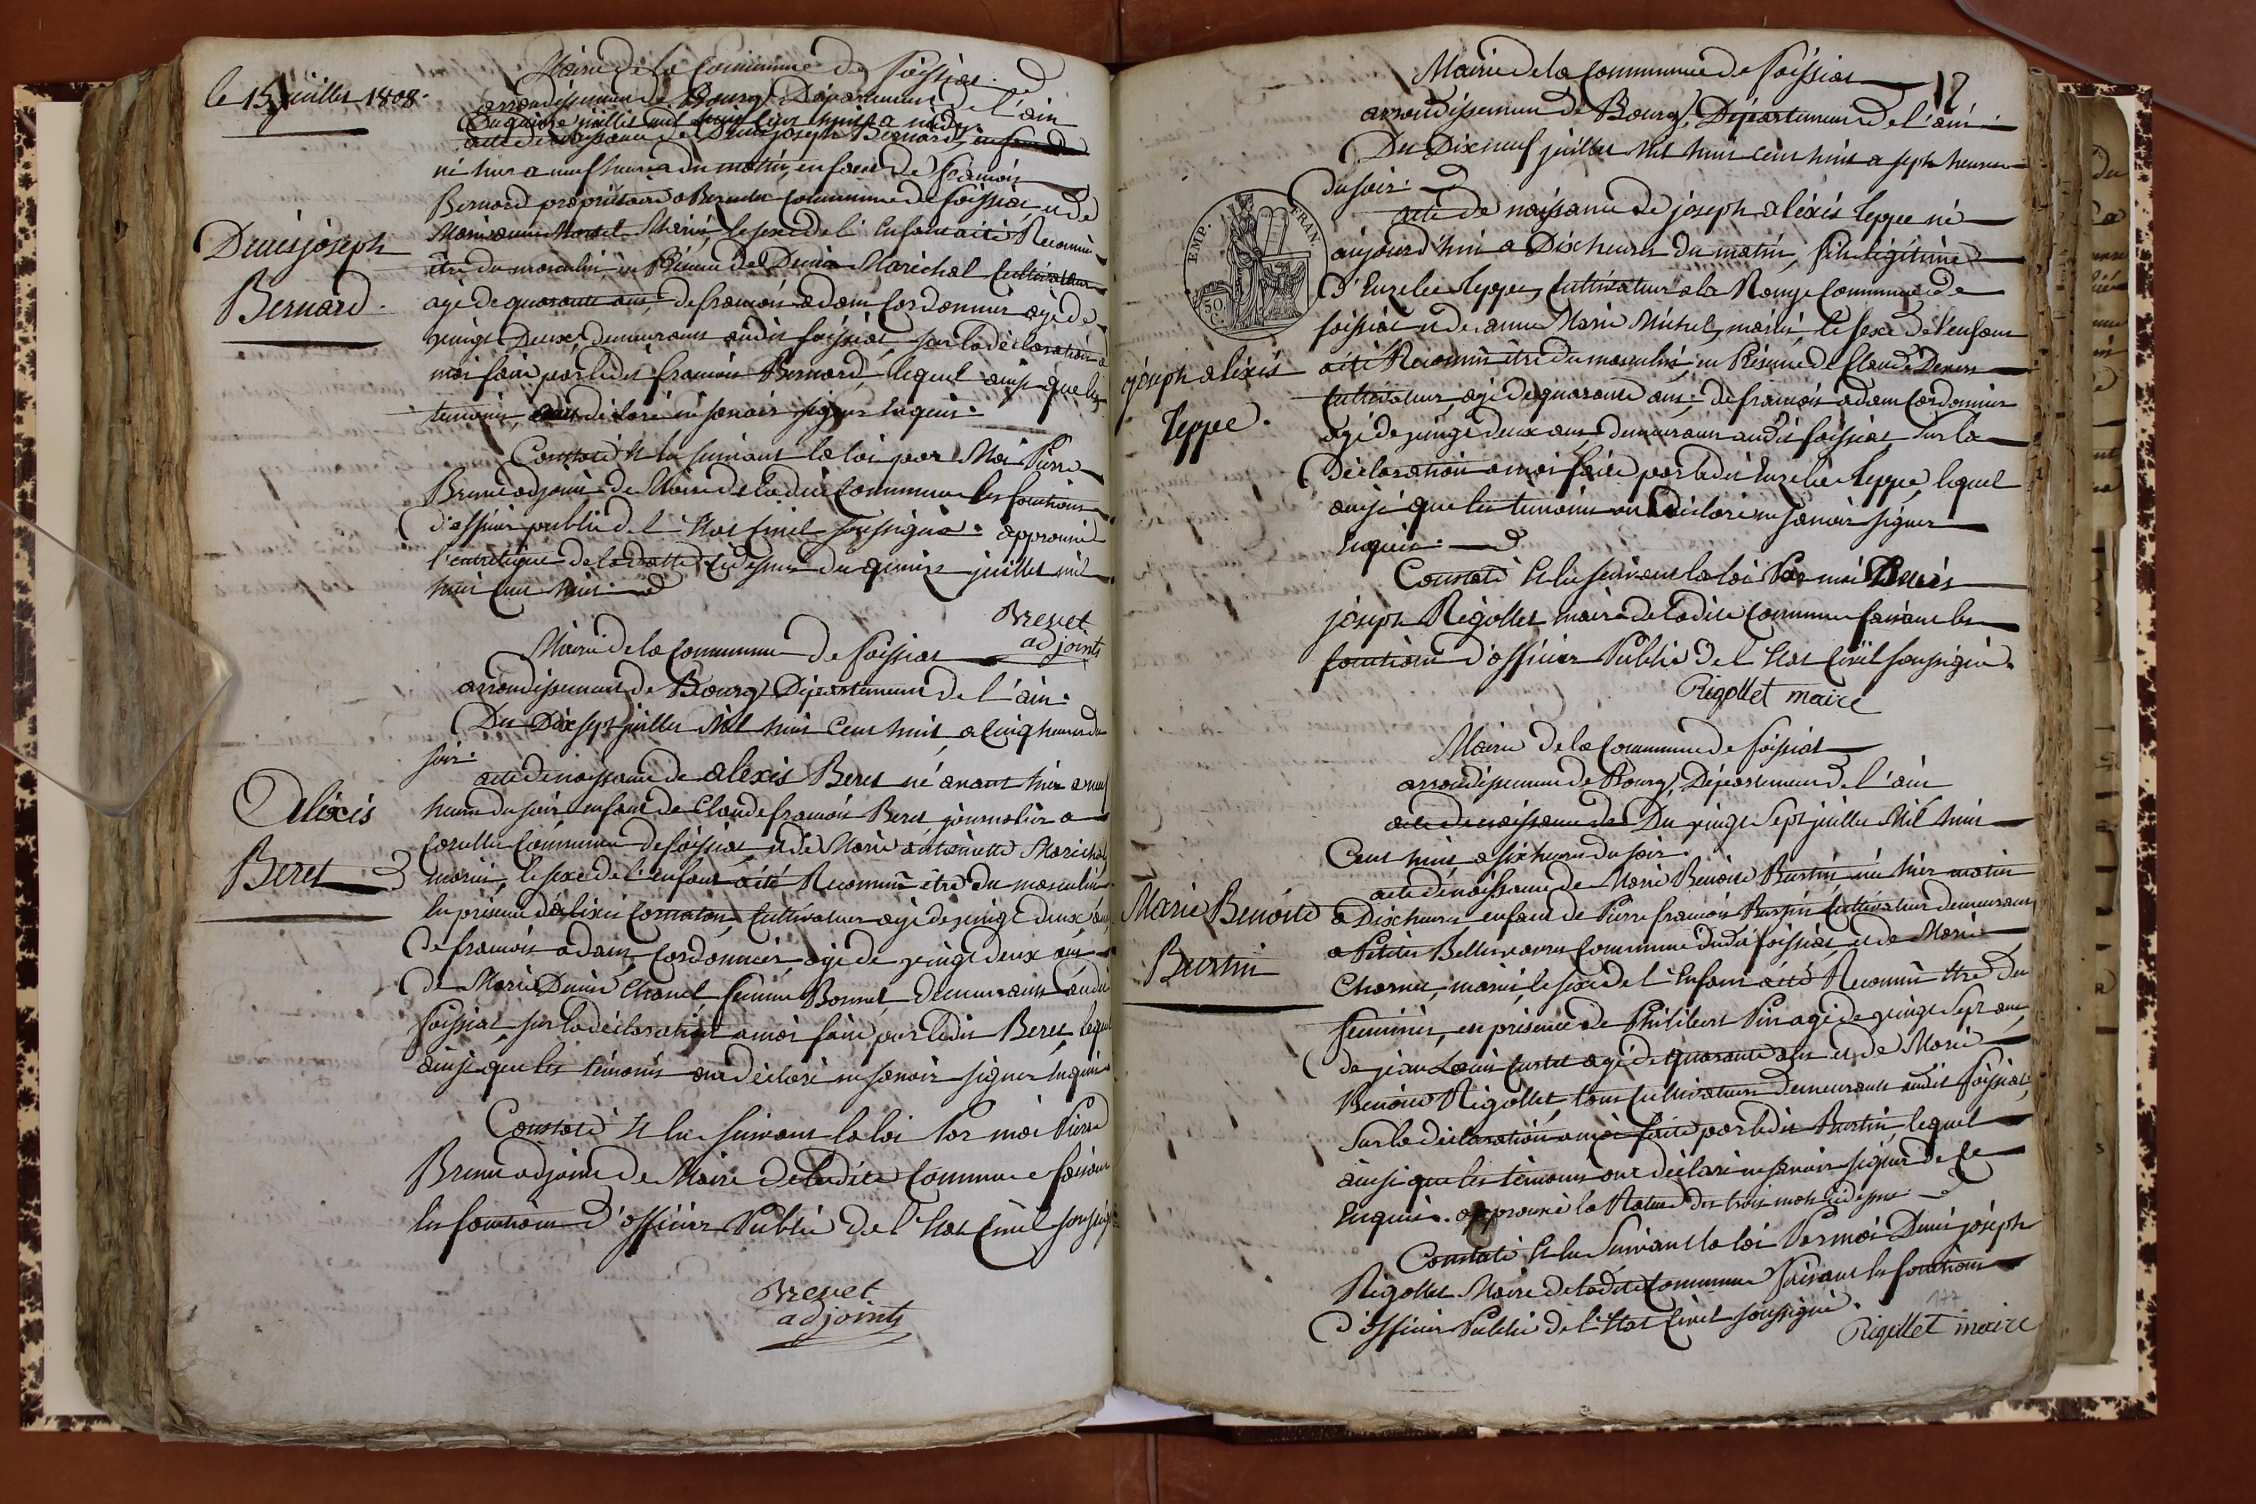 le 15 juillet 1808.
Mairie de la Commune de foissiat
arrondissement de Bourg Département de l'ain
Du quinze juillet mil huit cent huit a midy
acte de naissance de Denis joseph Bernard,
né hier a neuf heures du matin, enfant de françois
Bernard propriétaire a Commune de foissiat et de
Marie anne mariés, le sexe de l'Enfant a été Reconnu
être du masculin en Présence de Denis Maréchal Cultivateur
agé de quarante ans, de françois adam Cordonnier agé de
vingt Deux, demeurans audit foissiat, sur la déclaration a
moi faite par ledit françois Bernard, lequel ainsi que les
temoins, ont déclaré ne savoir signer Enquis.
Denis joseph
Bernard.
Constaté Et lu suivant la loi par Moi Pierre
Brevet adjoint de Maire de ladite Commune les fonctions
d'officier public de l'Etat Civil soussigné. approuvé
de la datte Cidessus du quinze juillet mil
huit cent huit
Brevet
adjoints
Mairie de la Commune de foissiat
arrondissement de Bourg Département de l'ain.
Du Dix sept juillet Mil huit Cent huit a Cinq heures du
soir.
acte de naissance de alexis Beret né avant hier a neuf
heures du soir enfant de Claude françois Beret journalier a
Commune de foissiat, et de Marie antoinette Maréchal
mariés, le sexe de l'enfant a été Reconnu être du masculin
En présence d'alexis Cornaton, Cultivateur agé de vingt deux ans,
de françois adam, Cordonnier, agé de vingt deux ans
de Marie Denise Chanel femme Bonnet, demeurans audit
foissiat, sur la déclaration a moi faite par ledit Beret, lequel
ainsi que les témoins ont déclaré ne savoir signer Enquis
Alexis
Beret
Constaté Et lu suivant la loi Par moi Pierre
Brevet adjoint de Maire de ladite Commune faisant
les fonctions d'officier Public de l'Etat Civil soussigné
Brevet
adjoints
17
Mairie de la Commune de foissiat
arrondissement de Bourg, Département de l'ain
Du Dix neuf juillet Mil huit Cent huit a sept heures
du soir.
EMP. FRAN.
50 C
acte de naissance de joseph alexis teppe né
aujourd'hui a Dix heures du matin, fils légitime
d'Eurelie teppe, Cultivateur a la Rouge Commune de
foissiat et de anne Marie Michel, mariés, le sexe de l'enfant
a été Reconnu être du masculin, en Présence de Claude
Cultivateur, agé de quarante ans, de françois adam Cordonnier
agé de vingt deux ans demeurans audit foissiat sur la
Déclaration a moi faite par ledit Eurelie teppe, lequel
ainsi que les temoins ont Déclaré ne savoir signer
Enquis.
joseph alexis
teppe.
Constaté Et lu suivant la loi Par moi Denis
joseph Rigollet maire de ladite Commune faisant les
fonctions d'officier Public de l'Etat Civil soussigné.
Rigollet maire
Mairie de la Commune de foissiat
arrondissement de Bourg, Département de l'ain
acte de naissance de Du vingt Sept juillet Mil huit
Cent huit a six heures du soir.
acte de naissance de Marie Benoite Burtin née hier matin
a Dix heures enfant de Pierre françois Burtin Cultivateur demeurant
a Petites Bellevavres Commune dudit foissiat, et de Marie
Charnet, mariés, le sexe de l'Enfant a été Reconnu être du
feminin, en présence de Philibert Pin agé de vingt Sept ans
de jean Louis Curtet agé de quarante ans et de Marie
Benoite Rigollet, tous Cultivateurs Demeurans audit foissiat,
Sur la déclaration a moi faite par ledit Burtin, lequel
ainsi que les témoins ont déclaré ne savoir signer de ce
Enquis. approuvé la Rature des trois mots cidessus
Marie Benoite
Burtin
Constaté Et lu Suivant la loi Par moi Denis joseph
Rigollet Maire de ladite Commune faisant les fonctions
d'officier Public de l'Etat Civil soussigné.
177
Rigollet maire